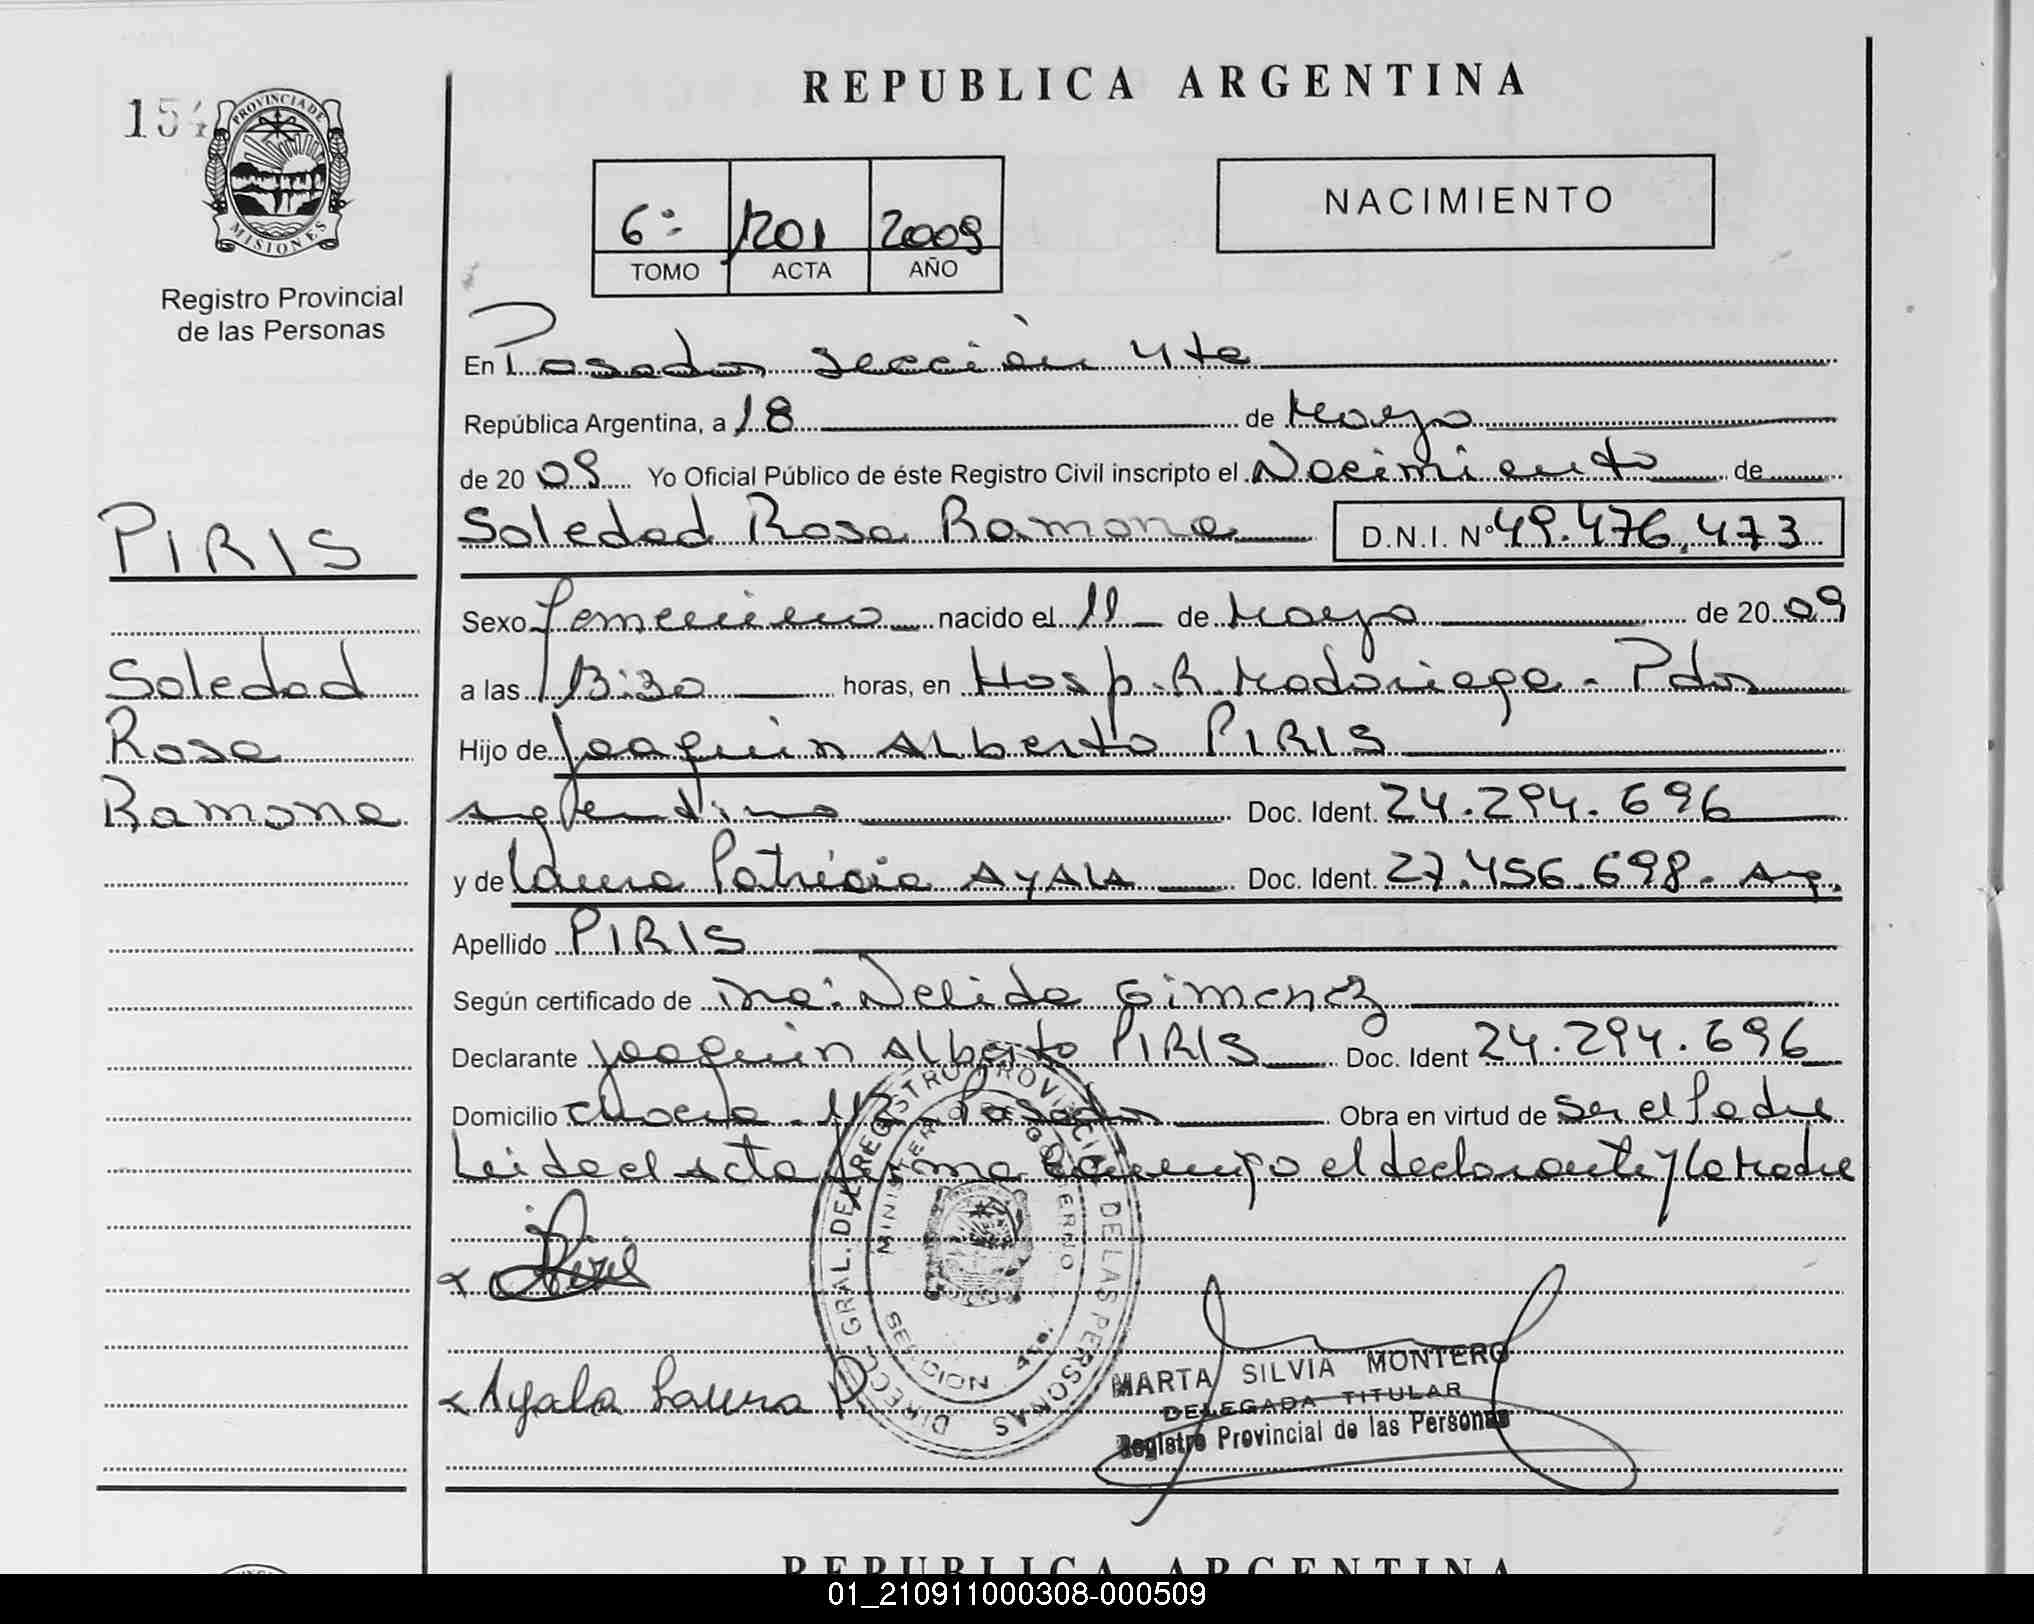 REPUBLICA ARGENTINA
154
PROVINCIA DE
MISIONES
Registro Provincial
de las Personas
6º 1201 2009
TOMO ACTA AÑO
NACIMIENTO
En Posadas sección 4ta
República Argentina, a 18 de Mayo
de 2009 Yo Oficial Público de éste Registro Civil inscripto el Nacimiento de
Soledad Rosa Ramona D.N.I. Nº 49.476.473
PIRIS
Soledad
Rosa
Ramona
Sexo femenino nacido el 11 de Mayo de 2009
a las 13:30 horas, en Hosp. R. Madariaga - Pdas
Hijo de Joaquin Alberto PIRIS
argentino Doc. Ident. 24.294.696
y de Laura Patricia AYALA Doc. Ident. 27.456.698 - Arg.
Apellido PIRIS
Según certificado de Nelida Gimenez
Declarante Joaquin Alberto PIRIS Doc. Ident 24.294.696
Domicilio Posadas Obra en virtud de Ser el Padre
Leida el Acta firma conmigo el declarante y la Madre
DIRECC. GRAL. DEL REGISTRO PROVINCIAL DE LAS PERSONAS
MINISTERIO DE GOBIERNO
SECCION 4ta.
Ayala Laura P
MARTA SILVIA MONTERO
DELEGADA TITULAR
Registro Provincial de las Personas
REPUBLICA ARGENTINA
01_210911000308-000509